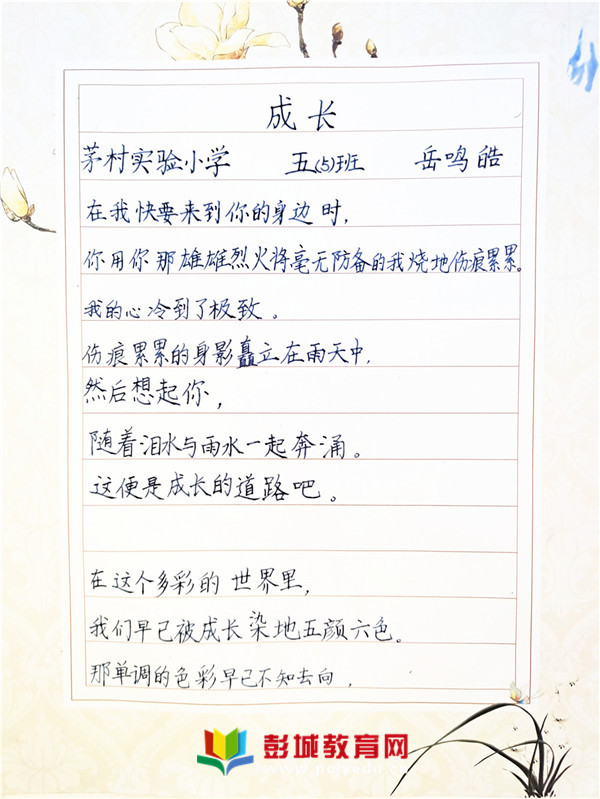 成长
茅村实验小学 五(5)班 岳鸣皓
在我快要来到你的身边时,
你用你那雄雄烈火将毫无防备的我烧地伤痕累累。
我的心冷到了极致。
伤痕累累的身影矗立在雨天中,
然后想起你,
随着泪水与雨水一起奔涌。
这便是成长的道路吧。
在这个多彩的世界里,
我们早已被成长染地五颜六色。
那单调的色彩早已不知去向,
彭城教育网